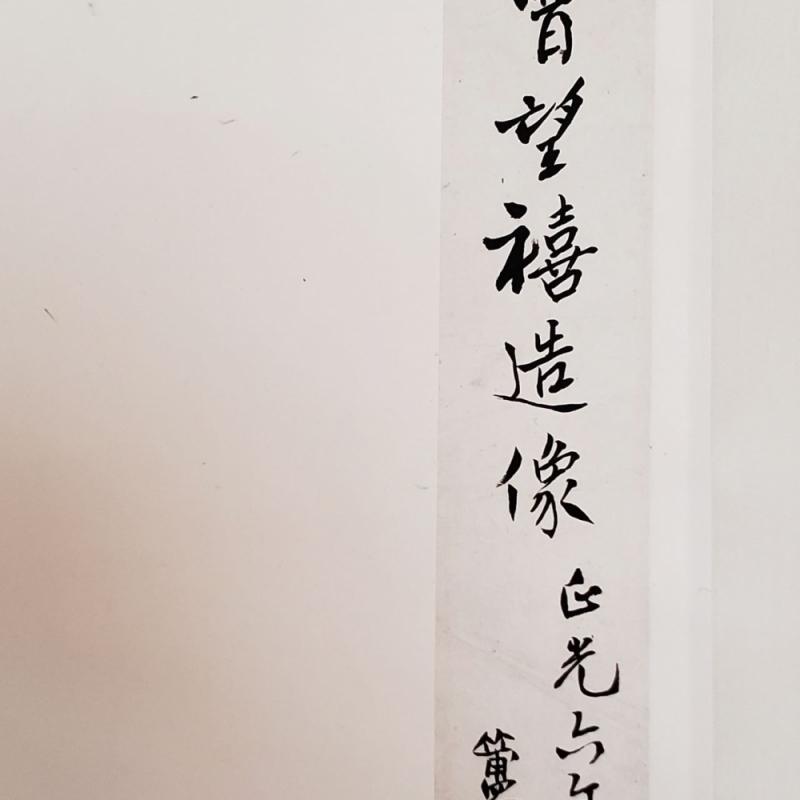 望禧造像
正光六